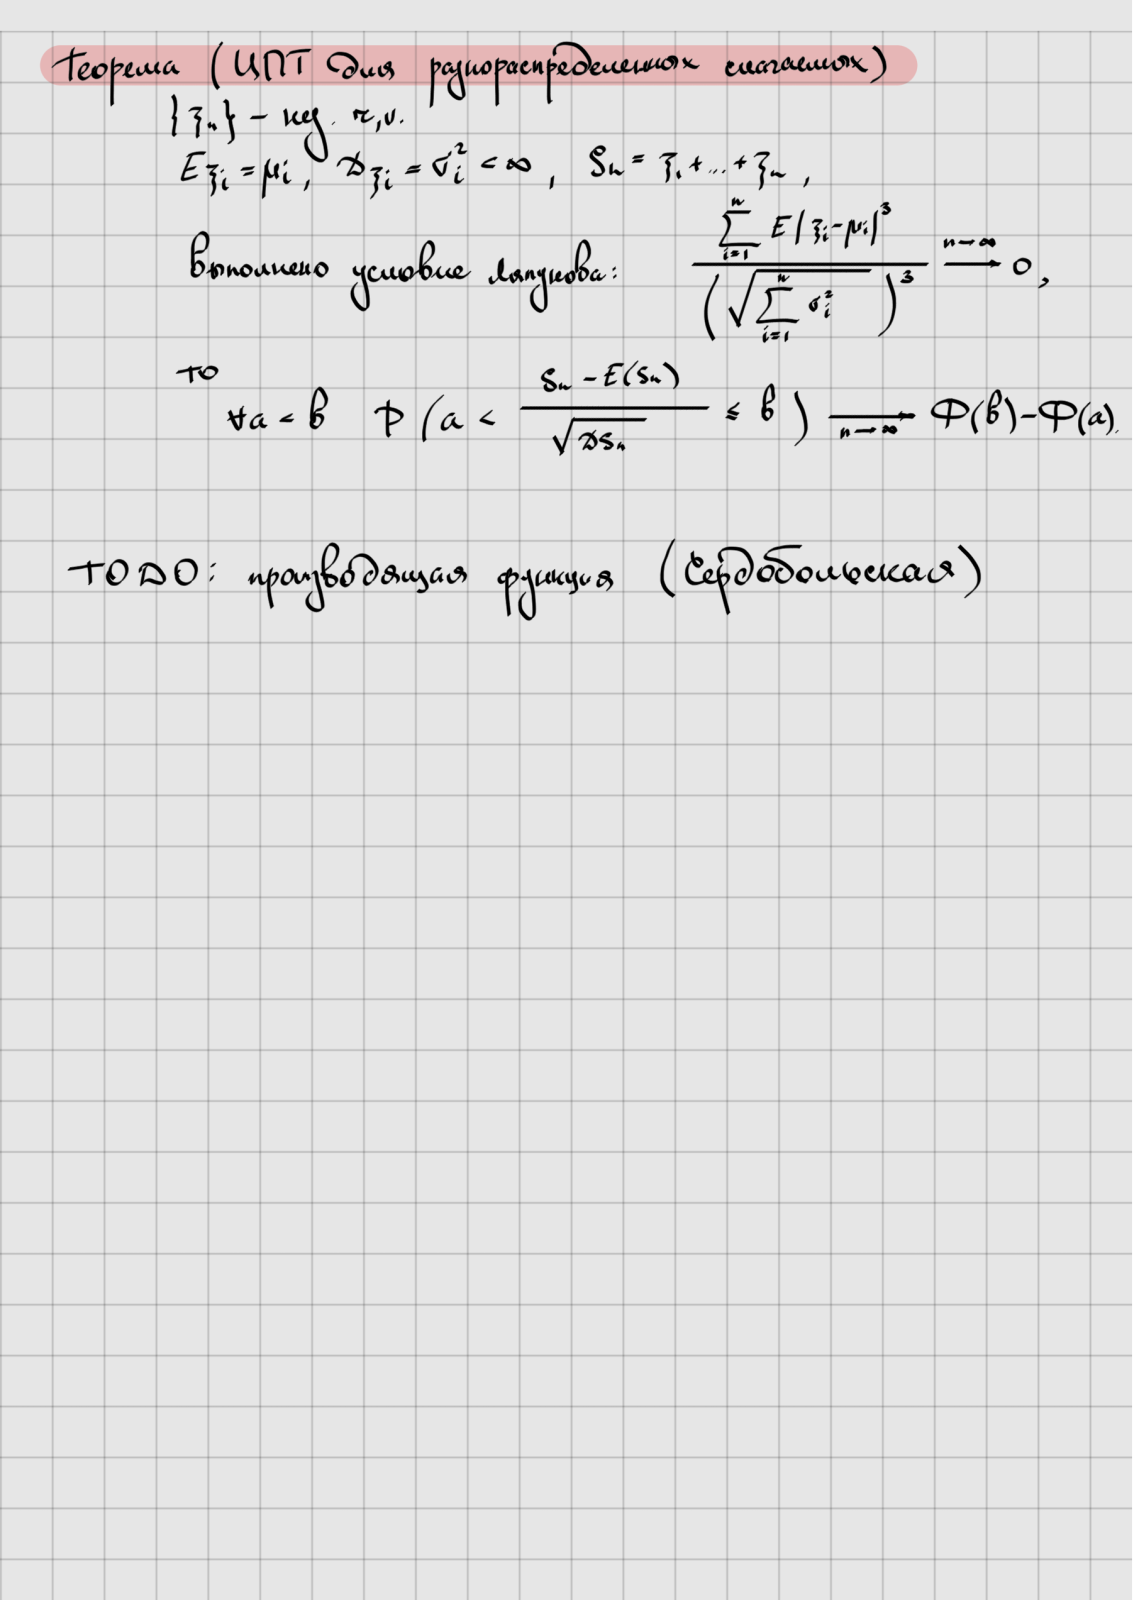 Теорема (ЦПТ для разнораспределенных слагаемых)
{ξₙ} – нез. r.v.
Eξᵢ = μᵢ, Dξᵢ = σᵢ² < ∞, Sₙ = ξ₁ + ... + ξₙ,
Выполнено условие Ляпунова: \frac{\sum_{i=1}^{n} E|ξᵢ - μᵢ|³}{(\sqrt{\sum_{i=1}^{n} σᵢ²})³} \xrightarrow{n→∞} 0,
то
∀a < b P(a < \frac{Sₙ - E(Sₙ)}{\sqrt{DSₙ}} ≤ b) \xrightarrow[n→∞]{} Φ(b) – Φ(a).
TODO: производящая функция (Сердобольская)